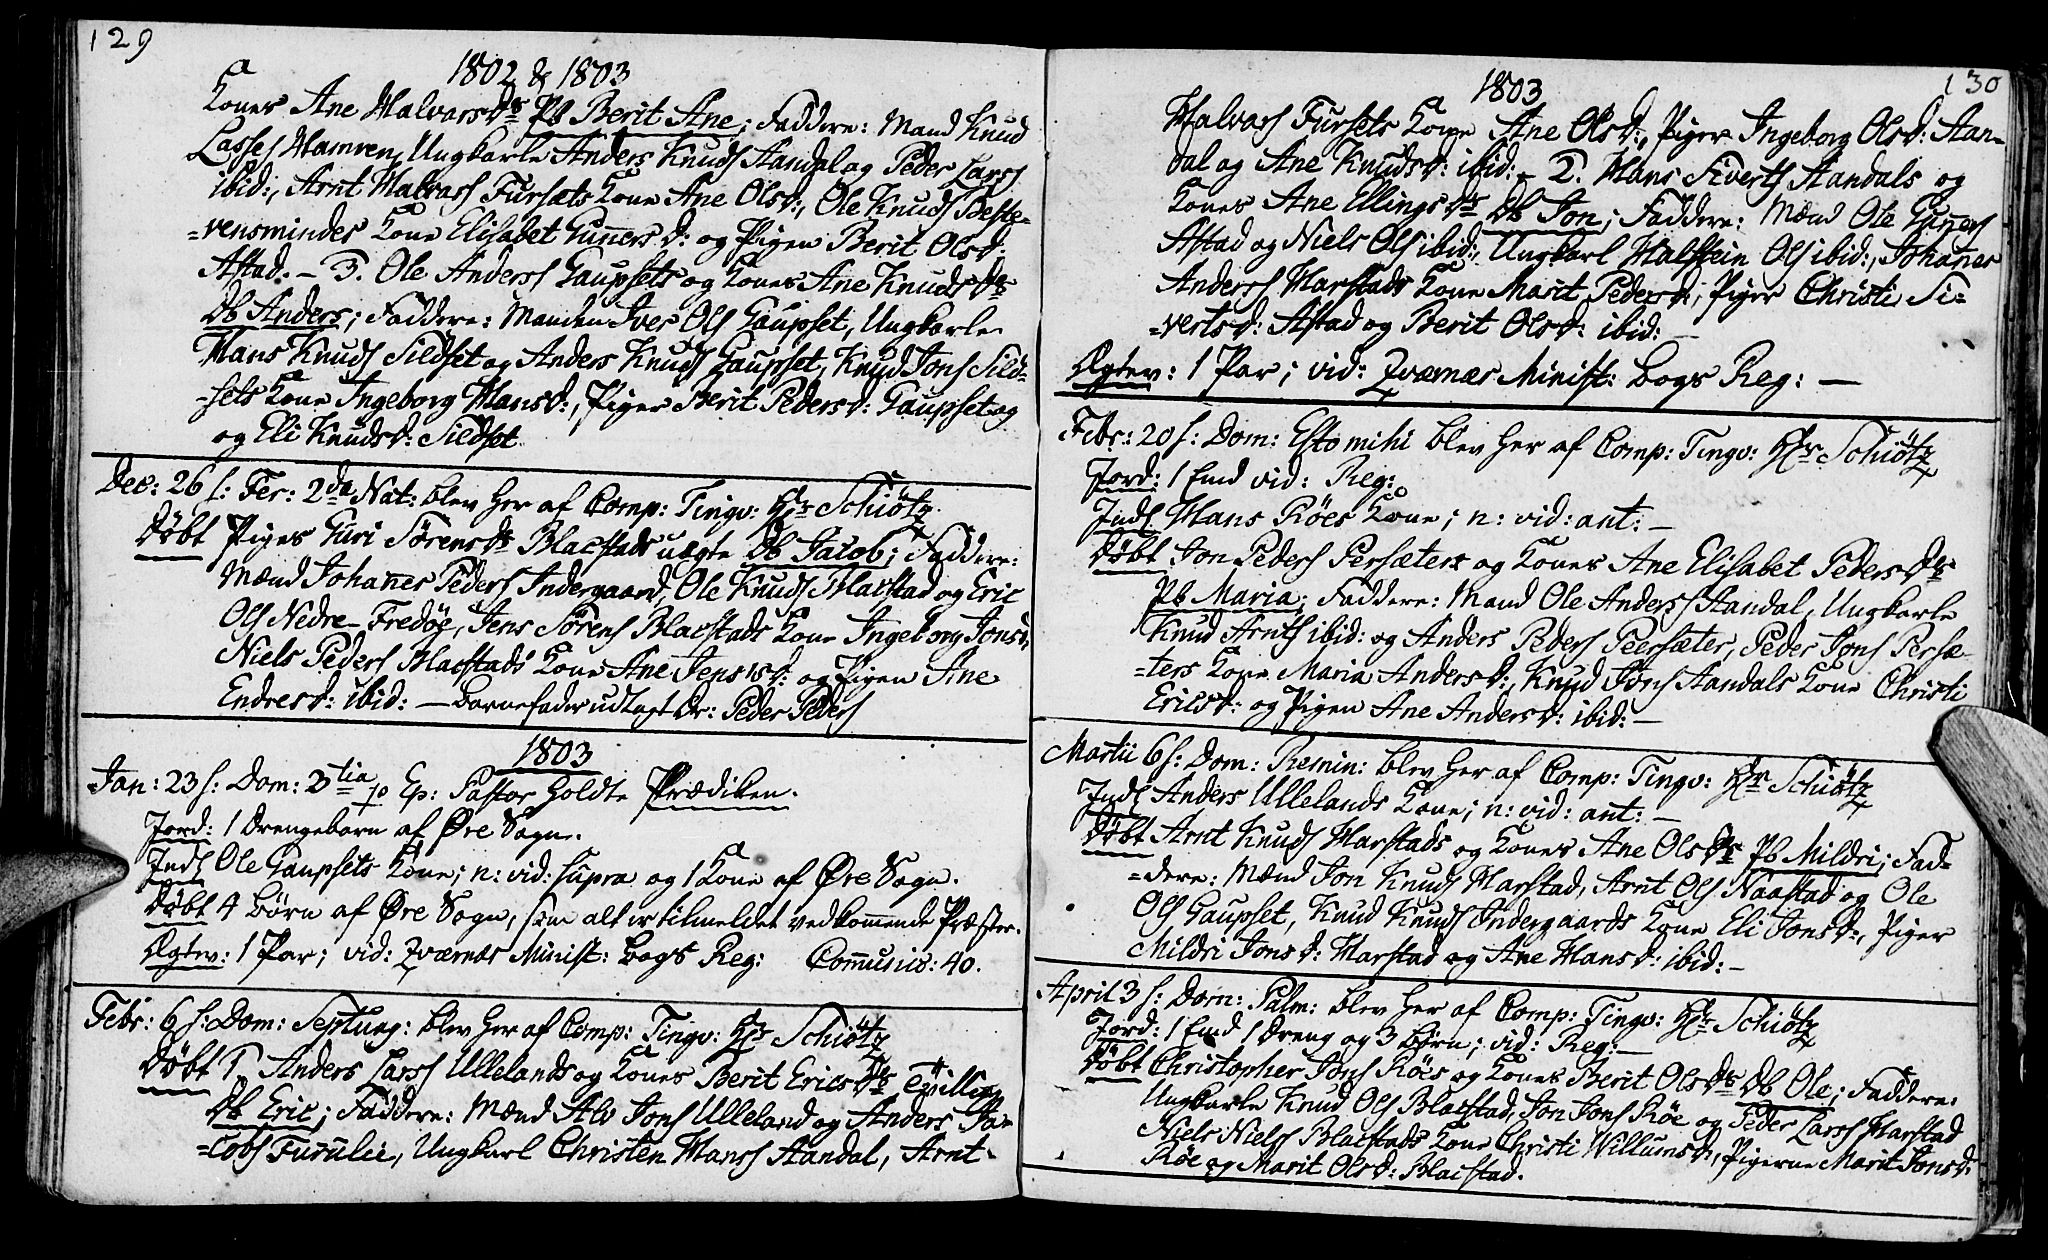 129
1802 & 1803
Kones Ane Halvorsdr Pb Berit Ane; Faddere: Mand Knud
Lasses Hamren, Ungkarle Anders Knuds Aandal og Peder Larss
ibid:, Arnt Halvors Fursæts Kone Ane Olsd:, Ole Knuds Beste-
=vensmindes Kone Elisabet Guners d: og Pigen Berit Olsd:
Astad. – 3. Ole Anderss Gaupsets og Kones Ane Knuds dr
Db Anders; Faddere: Manden Iver Ols Gaupset, Ungkarle
Hans Knuds Sildset og Anders Knuds Gaupset, Knud Jons Sild-
-sets Kone Ingeborg Hansd:, Piger Berit Pedersd: Gaupset og
og Eli Knudsd: Sildset
Dec: 26 s: Fer: 2da Nat: blev her af Comp: Tingv: Hr Schiötz
Döbt Piges Guri Sörensdr Blacstads uægte Db Jacob; Faddere:
Mænd Johanes Peders Indergaard, Ole Knuds Blacstad og Eric
Ols Nedre-Fredöe, Jens Sörens Blacstads Kone Ingeborg Jonsd,
Niels Peders Blacstads Kone Ane Jensisd: og Pigen Ane
Endresd: ibid: – Barnefader udlagt Dr: Peder Peders
1803
Jan: 23 s: Dom: 3tia p Ep: Pastor holdte Prædiken.
Jord: 1 Drengebarn af Øre Sogn.
Indl Ole Gaupsets Kone; n: vid: supra og 1 Kone af Øre Sogn.
Döbt 4 börn af Øre Sogn, som alt er tilmeldet vedkommende Præster.
Ægtev: 1 Par; vid: Qværnæs Minist: bogs Reg: Communic: 40.
Febr: 6 s: Dom: Septuag: blev her af Comp: Tingv: Hr Schiötz
Döbt 1. Anders Larss Ullelands og Kones Berit Ericsdr Tvilling
Db Eric; Faddere: Mænd Alv Jons Ulleland og Anders Ja-
=cobs Furulie, Ungkarl Christen Hanss Aandal, Arnt
130
1803
Halvors Fursets Kone Ane Olsd:, Piger Ingeborg Olsd: Aan-
dal og Ane Knudsd: ibid: – 2. Hans Siverts Aandals og
Kones Ane Ellingsdr Db Jon; Faddere: Mænd Ole Guners
Astad og Niels Ols ibid:, Ungkarl Halstein Ols ibid:, Johanes
Anderss Harstads Kone Marit Pedersd:, Piger Christi Si-
=vertsd: Astad og Berit Olsd: ibid: –
Ægtev: 1 Par; vid: Qværnæs Minist: bogs Reg: –
Febr: 20 s: Dom: Esto mihi blev her af Comp: Tingv: Hr Schiötz
Jord: 1 Emd vid: Reg:
Indl. Hans Röes Kone; n: vid: ant: –
Döbt Jon Peders Persæters og Kones Ane Elisabet Peders dr
Pb Maria; Faddere: Mand Ole Anderss Aandal, Ungkarle
Knud Arnts ibid: og Anders Peders Peersæter, Peder Jons Persæ-
=ters Kone Maria Andersd:, Knud Jons Aandals Kone Christi
Ericsd: og Pigen Ane Andersd: ibid: –
Martii 6 s: Dom: Remin: blev her af Comp: Tingv: Hr Schiötz
Indl Anders Ullelands Kone; n: vid: ant: –
Döbt Arnt Knuds Harstads og Kones Ane Olsdr Pb Mildri; Fad-
=dere: Mænd Jon Knuds Harstad, Arnt Ols Naastad og Ole
Ols Gaupset, Knud Knuds Indergaards Kone Eli Jonsd:, Piger
Mildri Jonsd: Harstad og Ane Hansd: ibid: –
April 3 s: Dom: Palm: blev her af Comp: Tingv: Hr Schiötz
Jord: 1 Emd 1 Dreng og 3 Börn; vid: Reg: –
Döbt Christopher Jons Röes og Kones Berit Olsdr Db Ole; Faddere:
Ungkarle Knud Ols Blacstad, Jon Jons Röe og Peder Larss Harstad
Niels Niels Blacstads Kone Christi Willumsd:, Pigerne Marit Jonsd:
Röe og Marit Olsd: Blacstad.